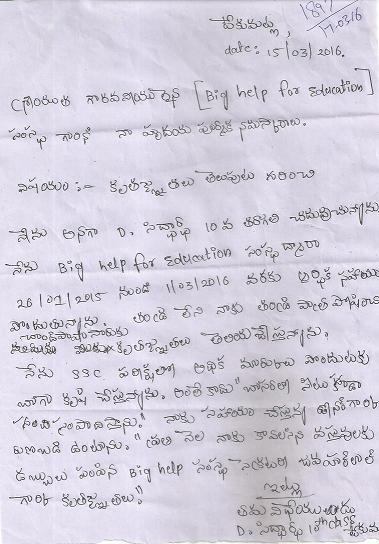 టేకుమట్ల,
1897
17.0316
date: 15/03/2016.
గౌరవనీయులైన [Big help for Education]
సంస్థ గారికి నా హృదయ పూర్వక నమస్కారాలు.
విషయం :- కృతజ్ఞతలు తెలుపుట గురించి
నేను అనగా D. సిద్ధార్థ 10 వ తరగతి చదువుచున్నాను
నేను Big help for Education సంస్థ ద్వారా
26/01/2015 నుండి 1/03/2016 వరకు ఆర్థిక సహాయం
పొందుతున్నాను. తండ్రి లేని నాకు తండ్రి పాత్ర
కృతజ్ఞతలు తెలియచేస్తున్నాను.
నేను SSC పరీక్షలో అధిక మార్కులు పొందుటకు
బాగా కృషి చేస్తున్నాను. అంతే కాదు
నాకు సహాయం చేస్తున్న
ఉంటాను. ప్రతి నెల నాకు కావలసిన వస్తువులకు
డబ్బులు పంపిన Big help సంస్థ
గారికి కృతజ్ఞతలు."
ఇట్లు
తమ విధేయుడు
D. సిద్ధార్థ 10th class